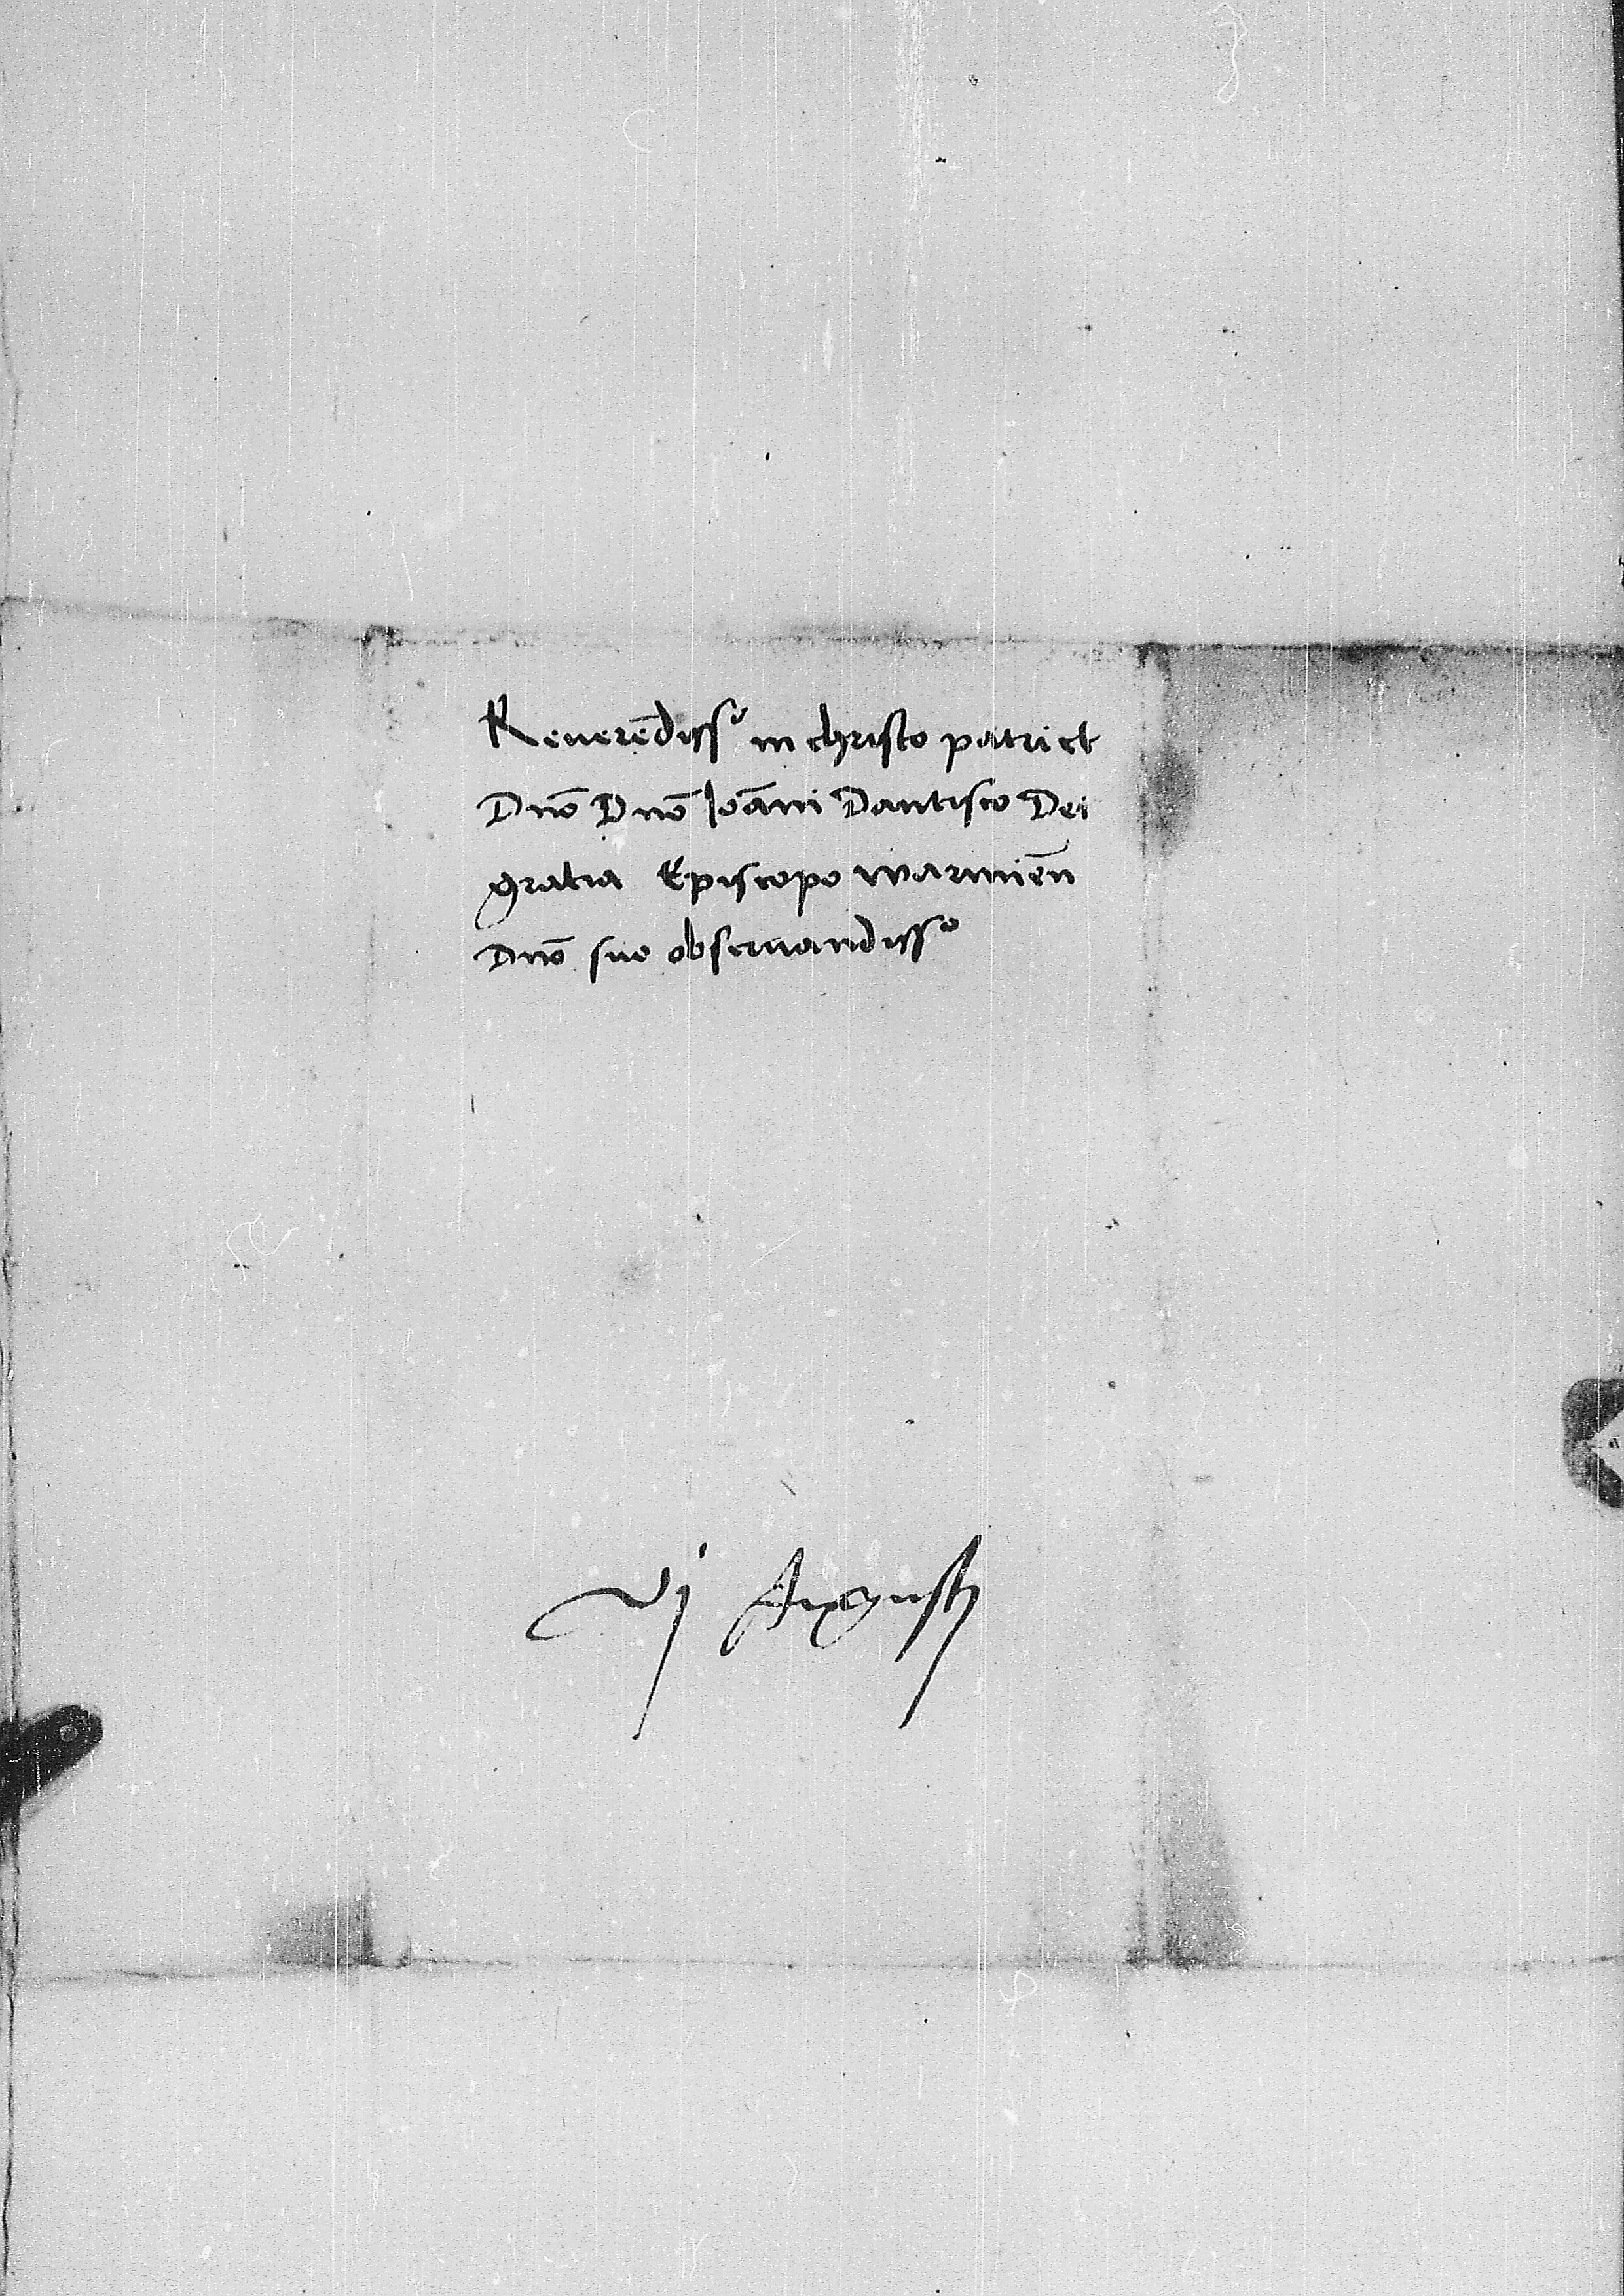 Reuere̅dissᵒ in christo patri et
Dno̅ Dno̅ Ioa̅ni Dantisco Dei
gratia Episcopo warmien̅
Dno̅ suo obseruandissᵒ
vj Augusti